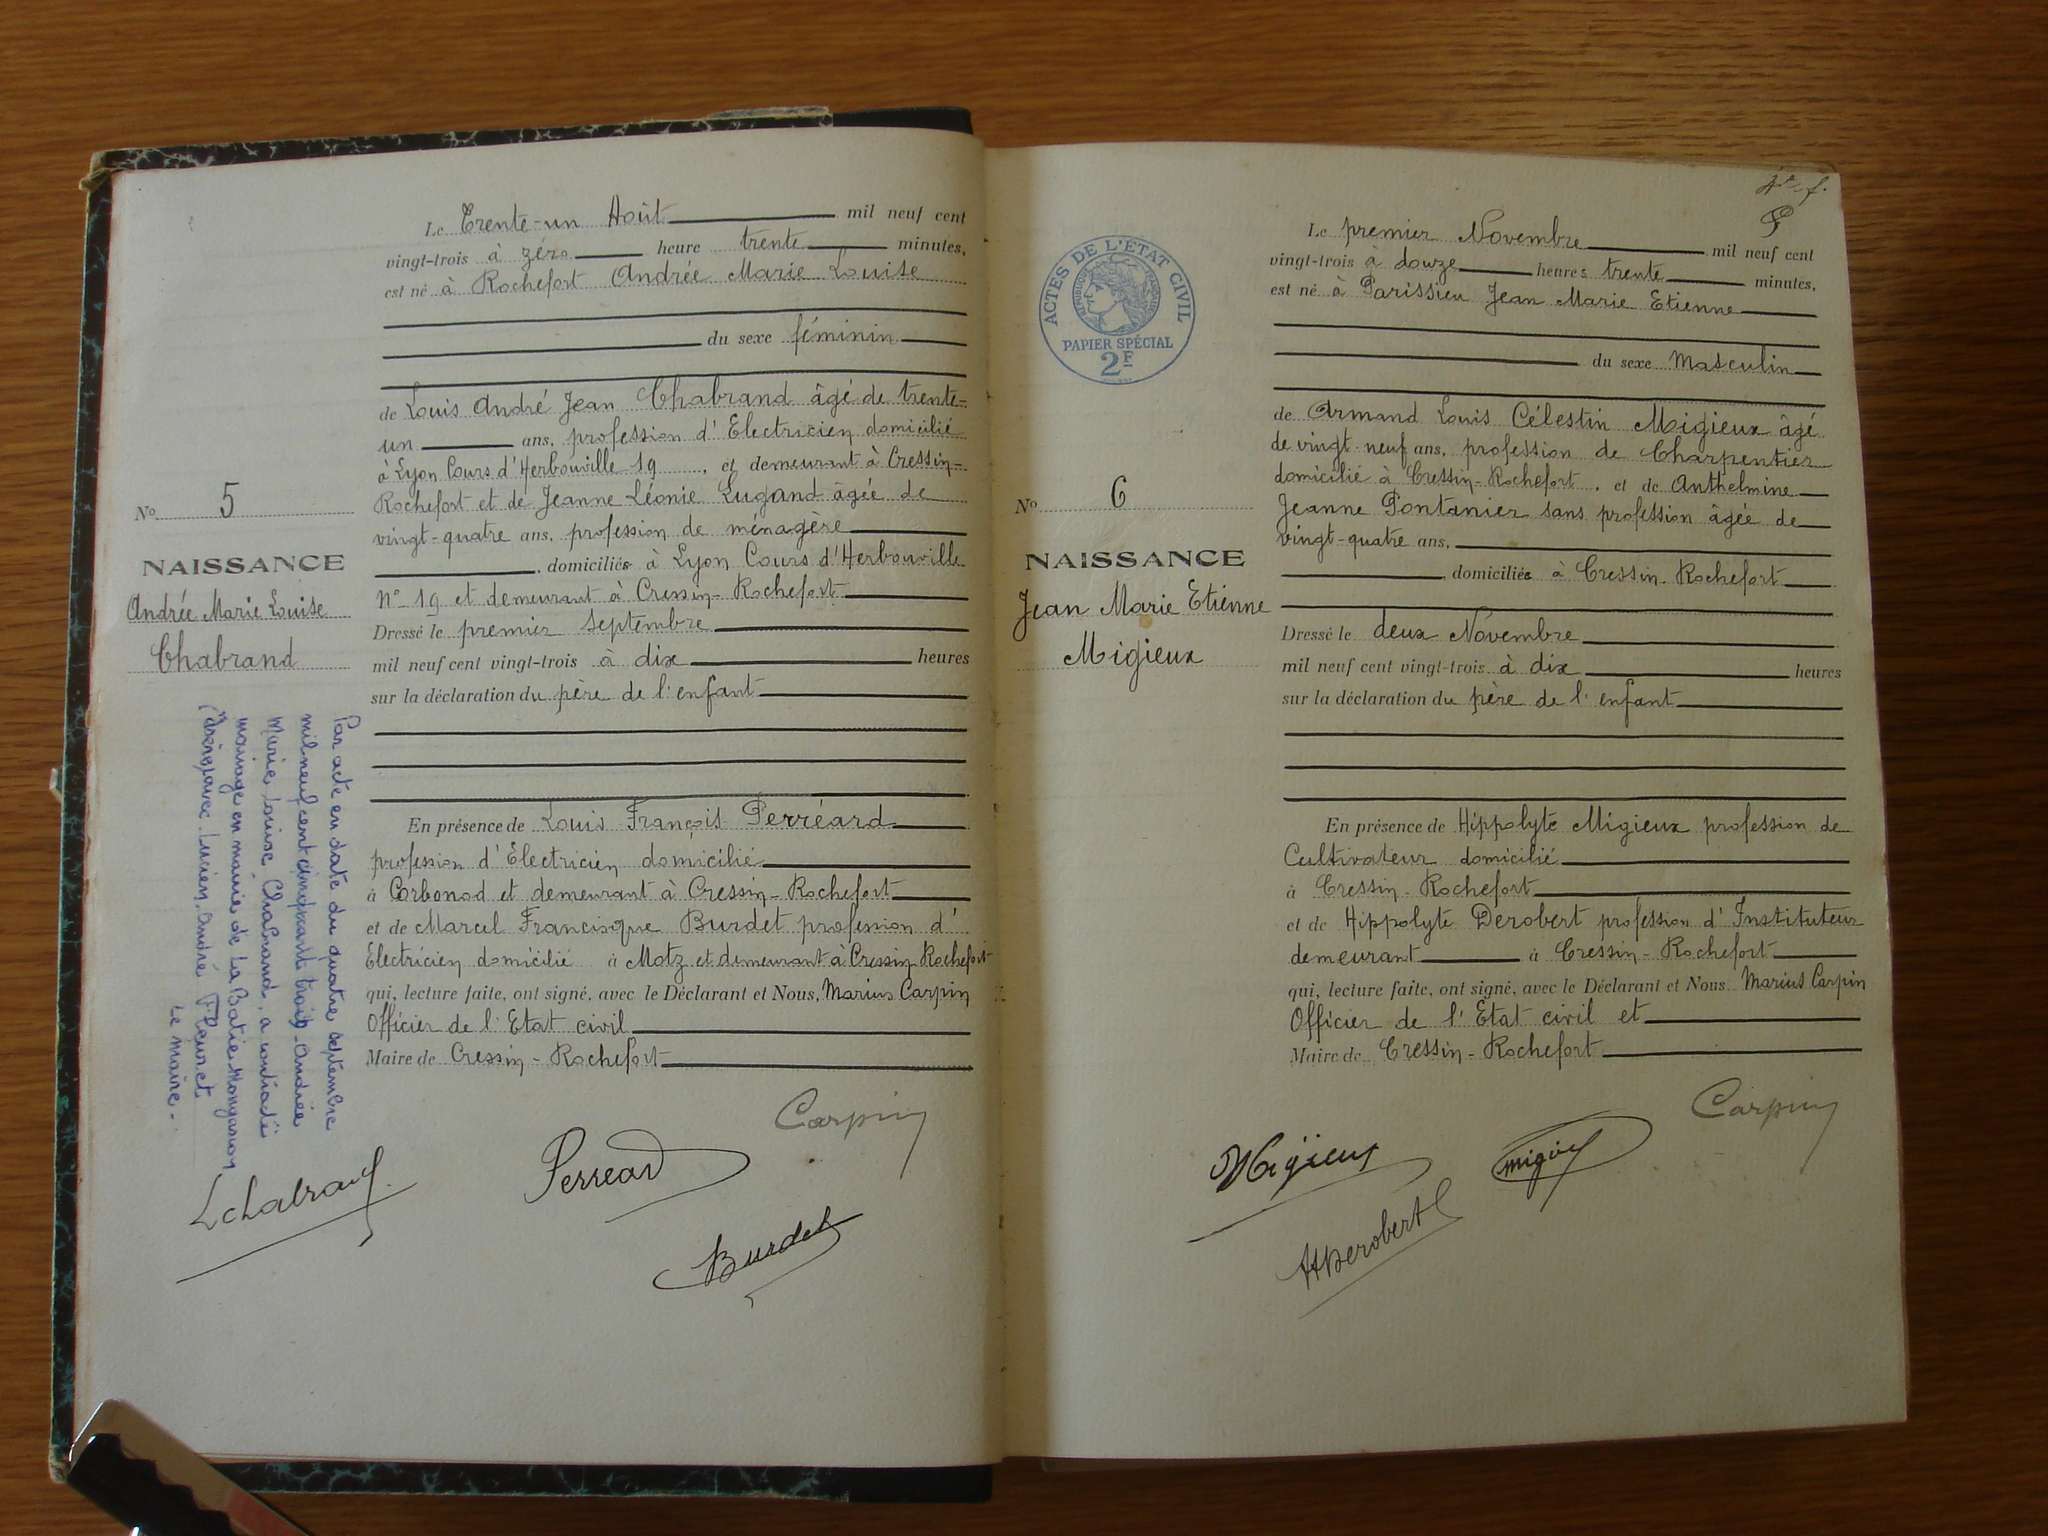 Le Trente-un Août mil neuf cent
vingt-trois à zéro heure trente minutes,
est né à Rochefort Andrée Marie Louise
du sexe féminin
de Louis André Jean Chabrand âgé de trente-
un ans, profession d'Electricien domicilié
à Lyon Cours d'Herbouville 19, et demeurant à Cressin-
Rochefort et de Jeanne Léonie Lugand âgée de
vingt-quatre ans, profession de ménagère
, domiciliés à Lyon Cours d'Herbouville
N° 19 et demeurant à Cressin-Rochefort
Dressé le premier septembre
mil neuf cent vingt-trois à dix heures
sur la déclaration du père de l'enfant
En présence de Louis François Perréard
profession d'Electricien domicilié
à Corbonod et demeurant à Cressin-Rochefort
et de Marcel Francisque Burdet profession d'
Electricien domicilié à Motz et demeurant à Cressin Rochefort
qui, lecture faite, ont signé, avec le Déclarant et Nous, Marius Carpin
Officier de l'Etat civil
Maire de Cressin-Rochefort
No 5
NAISSANCE
Andrée Marie Louise
Chabrand
Par acte en date du quatre septembre
mil neuf cent cinquante trois, Andrée
Marie Louise Chabrand, a contracté
mariage en mairie de La Batie Mongascon
(Isère) avec Lucien, André Fleuret
Le maire.
Carpin
LChabrand
Perreard
Burdet
4e f.
ACTES DE L'ÉTAT CIVIL
RÉPUBLIQUE FRANÇAISE
PAPIER SPÉCIAL
2F
Le premier Novembre mil neuf cent
vingt-trois à douze heures trente minutes,
est né à Parissieu Jean Marie Etienne
du sexe Masculin
de Armand Louis Célestin Migieux âgé
de vingt-neuf ans, profession de Charpentier
domicilié à Cressin-Rochefort, et de Anthelmine
Jeanne Pontanier sans profession âgée de
vingt-quatre ans,
, domiciliés à Cressin-Rochefort
Dressé le deux Novembre
mil neuf cent vingt-trois à dix heures
sur la déclaration du père de l'enfant
En présence de Hippolyte Migieux profession de
Cultivateur domicilié
à Cressin-Rochefort
et de Hippolyte Derobert profession d'Instituteur
demeurant à Cressin-Rochefort
qui, lecture faite, ont signé, avec le Déclarant et Nous Marius Carpin
Officier de l'Etat civil et
Maire de Cressin-Rochefort
No 6
NAISSANCE
Jean Marie Etienne
Migieux
Carpin
Migieux
HDerobert